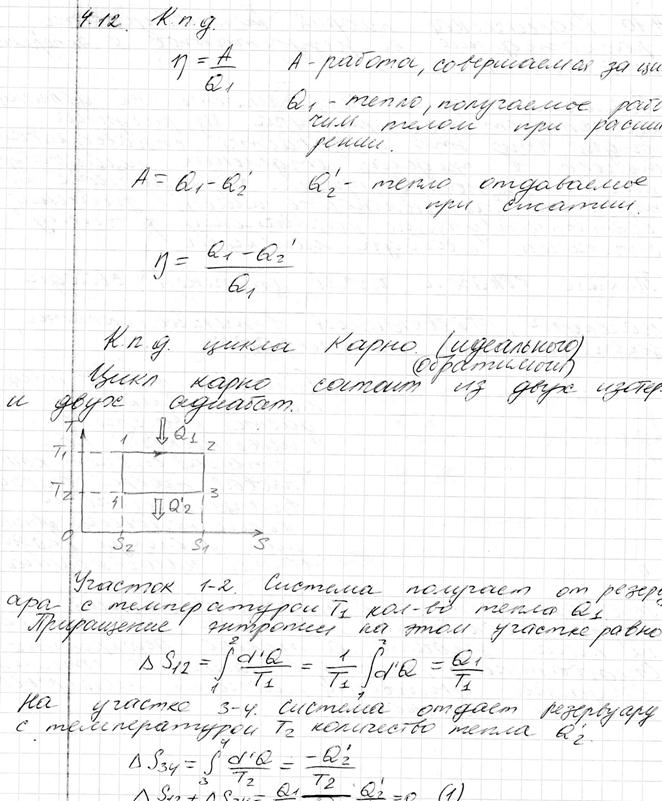 4.12. К.п.д.
η = A/Q₁   A - работа, совершаемая за ци
Q₁ - тепло, получаемое рабо
чим телом при расши
рении.
A = Q₁ - Q₂'   Q₂' - тепло отдаваемое
при сжатии.
η = (Q₁ - Q₂')/Q₁
К.п.д. цикла Карно. (идеального)
(обратимый)
Цикл карно состоит из двух изотер
и двух адиабат.
T
1 Q₁ 2
T₁
T₂ 4 Q₂' 3
0 S₂ S₁ S
Участок 1-2. Система получает от резерву
ара с температурой T₁ кол-во тепла Q₁
Приращение энтропии на этом участке равно
ΔS₁₂ = ∫₁² d'Q/T₁ = 1/T₁ ∫₁² d'Q = Q₁/T₁
На участке 3-4. система отдает резервуару
с температурой T₂ количество тепла Q₂'.
ΔS₃₄ = ∫₃⁴ d'Q/T₂ = -Q₂'/T₂
ΔS₁₂ + ΔS₃₄ = Q₁ Q₂' = 0 (1)